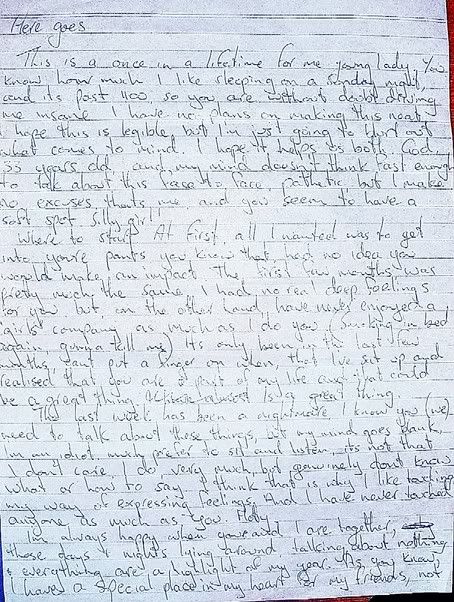 Here goes
This is a once in a lifetime for me young lady. You
know how much I like sleeping on a Sunday night,
and its past 1100, so you are without doubt driving
me insane. I have no plans on making this neat,
I hope this is legible, but I'm just going to blurt out
what comes to mind. I hope it helps us both. God,
33 years old and my mind doesn't think fast enough
to talk about this face to face, pathetic but I make
no excuses, thats me and you seem to have a
soft spot. Silly girl!
Where to start. At first, all I wanted was to get
into youre pants you know that, had no idea you
would make an impact. The first few months was
pretty much the same, I had no real deep feelings
for you but, on the other hand, have never enjoyed a
girls company as much as I do you (smoking in bed
again, gonna tell me) Its only been in the last few
months, cant put a finger on when, that I've sat up and
realised that you are a part of my life and that could
be a great thing. Is a great thing.
This last week has been a nightmare, I know you (we)
need to talk about these things, but my mind goes blank.
Im an idiot, much prefer to sit and listen, its not that
I don't care, I do very much, but genuinely dont know
what or how to say. I think that is why I like touching
my way of expressing feelings. And I have never touched
anyone as much as you.
Im always happy when you and I are together,
those days & nights lying around talking about nothing
& everything are a highlight of my year. As you know,
I have a special place in my heart for my friends, not